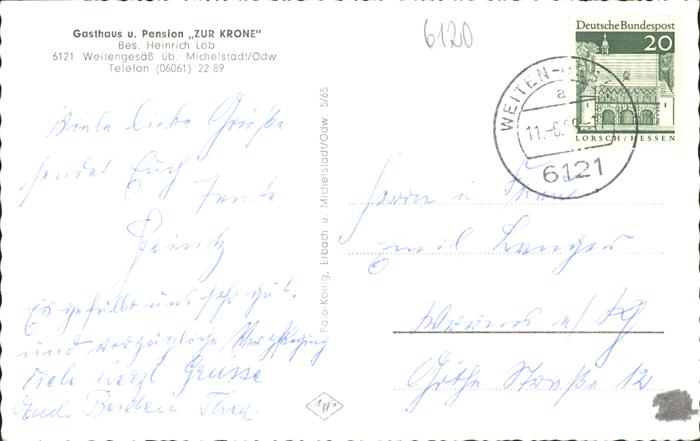 Gasthaus u. Pension „ZUR KRONE"
Bes. Heinrich Löb
6121 Weitengesäß üb. Michelstadt/Odw.
Telefon (06061) 22 89
6120
Deutsche Bundespost
20
LORSCH/HESSEN
WEITEN-
a
11.-6.
6121
Viele liebe Grüße
sendet Euch Tante
Es gefällt uns sehr gut.
und vorzügliche Verpflegung
Viele herzl Grüsse
Beiden
Foto-König, Erbach u. Michelstadt/Odw. 5/65
Herrn u Frau
Emil Langer
Worms a/
Göthe Straße 12